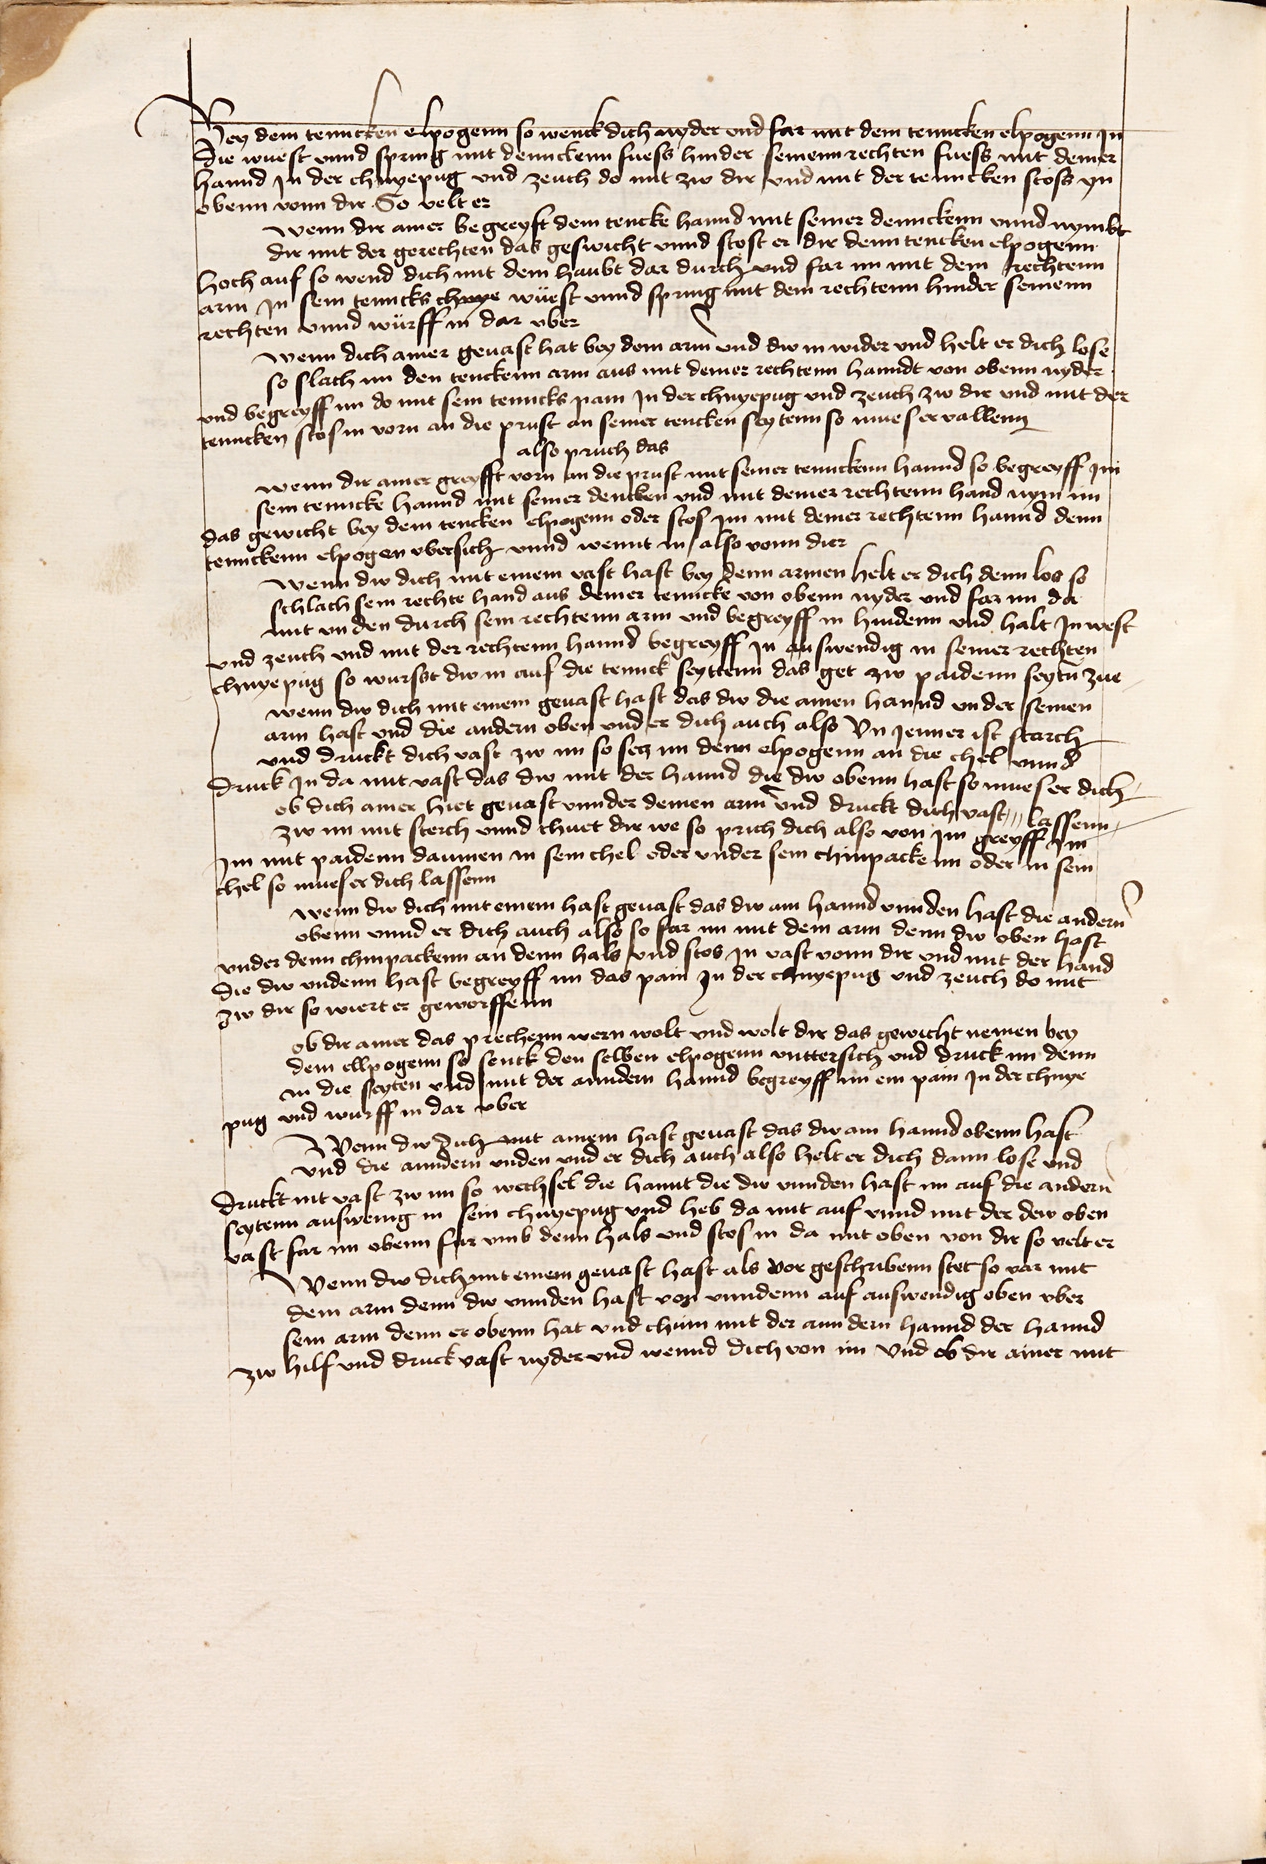 Bey dem tenncken elpogenn so wenck dich nyder vnd far mit dem tenncken elpogenn In
die wuest vnnd spring mit dennckenn fuess hinder seinenn rechten fuess mit deiner
hannd In der chnyepug vnd zeuch do mit zw dir vnd mit der tenncken stoss yn
obenn vonn dir So velt er
Wenn dir ainer begreyft dein tencke hannd mit seiner dennckenn vnnd nymbt
dir mit der gerechten das geswicht vnnd stost er dir denn tencken elpogenn
hoch auf so wend dich mit dem haubt dar durch vnd far im mit dem rechtenn
arm In sein tenncks chnye wüest vnnd spring mit dem rechtenn hinder seinenn
rechten vnnd würff in dar vber
Wenn dich ainer geuast hat bey dem arm vnd dw in wider vnd helt er dich lose
so slach im den tenckenn arm aus mit deiner rechtenn hanndt von obenn nyder
vnd begreyff im do mit sein tenncks pain In der chnyepug vnd zeuch zw dir vnd mit der
tenncken stos in vorn an die prust an seiner tencken seytenn so mues er vallenn
also pruch das
Wenn dir ainer greyfft vorn an die prust mit seiner tennckenn hannd so begreyff Im
sein tenncke hannd mit seiner dencken vnd mit deiner rechtenn hand nym im
das gewicht bey dem tencken elpogenn oder stos im mit deiner rechtenn hannd denn
tennckenn elpogen vbersich vnnd wennt in also vonn dier
Wenn dw dich mit einem vast hast bey denn armen helt er dich denn los so
schlach sein rechte hand aus deiner tenncke von obenn nyder vnd far im da
mit vnden durch sein rechtenn arm vnd begreyff in hindenn vnd halt In vest
vnd zeuch vnd mit der rechtenn hannd begreyff In auswendig in seiner rechten
chnyepug so wurfst dw in auf die tennck seyttenn das get zw paidenn seytn zue
Wenn dw dich mit einem geuast hast das dw die ainen hannd vnder seinen
arm hast vnd die andern oben vnd er dich auch also Vn Jenner ist starch
vnd druckt dich vast zw im so secz im denn elpogenn an die chel vnnd
druck In da mit vast das dw mit der hannd die dw obenn hast so mues er dich
ob dich ainer hiet geuast vnnder deinen arm vnd druckt dich vast lassenn
zw im mit sterch vnnd thuet dir we so prich dich also von im greyff Im
Im mit paidenn daumen in sein chel oder vnder sein chinpackenn oder in sein
chel so mues er dich lassenn
Wenn dw dich mit einem hast geuast das dw ain hannd vnnden hast die andern
obenn vnnd er dich auch also so far im mit dem arm denn dw oben hast
vnder denn chinpackenn an denn hals vnd stos In vast vonn dir vnd mit der hand
die dw vndenn hast begreyff im das pain In der chnyepug vnd zeuch do mit
zw dir so wiert er geworffenn
ob dir ainer das prechenn wern wolt vnd wolt dir das gewicht nemen bey
dem ellpogenn so senck den selben elpogenn vnttersich vnd druck im denn
in die seyten vnd mit der anndern hannd begreyff im ein pain In der chnye
pug vnd wurff in dar vber
Wenn dw dich mit ainem hast geuast das dw ain hannd obenn hast
vnd die anndern vnden vnd er dich auch also helt er dich dann lose vnd
druckt nit vast zw im so wechsel die hannt die dw vnnden hast im auf die andern
seytenn auswenig in sein chnyepug vnd heb da mit auf vnnd mit der dew oben
vast far im obenn fur vmb denn hals vnd stos in da mit oben von dir so velt er
Wenn dw dich mit einem geuast hast als vor geschribenn stet so var mit
dem arm denn dw vnnden hast von vnndenn auf auswendig oben vber
sein arm denn er obenn hat vnd chum mit der anndern hannd der hannd
zw hilf vnd druck vast nyder vnd wennd dich von im Vnd ob dir ainer mit